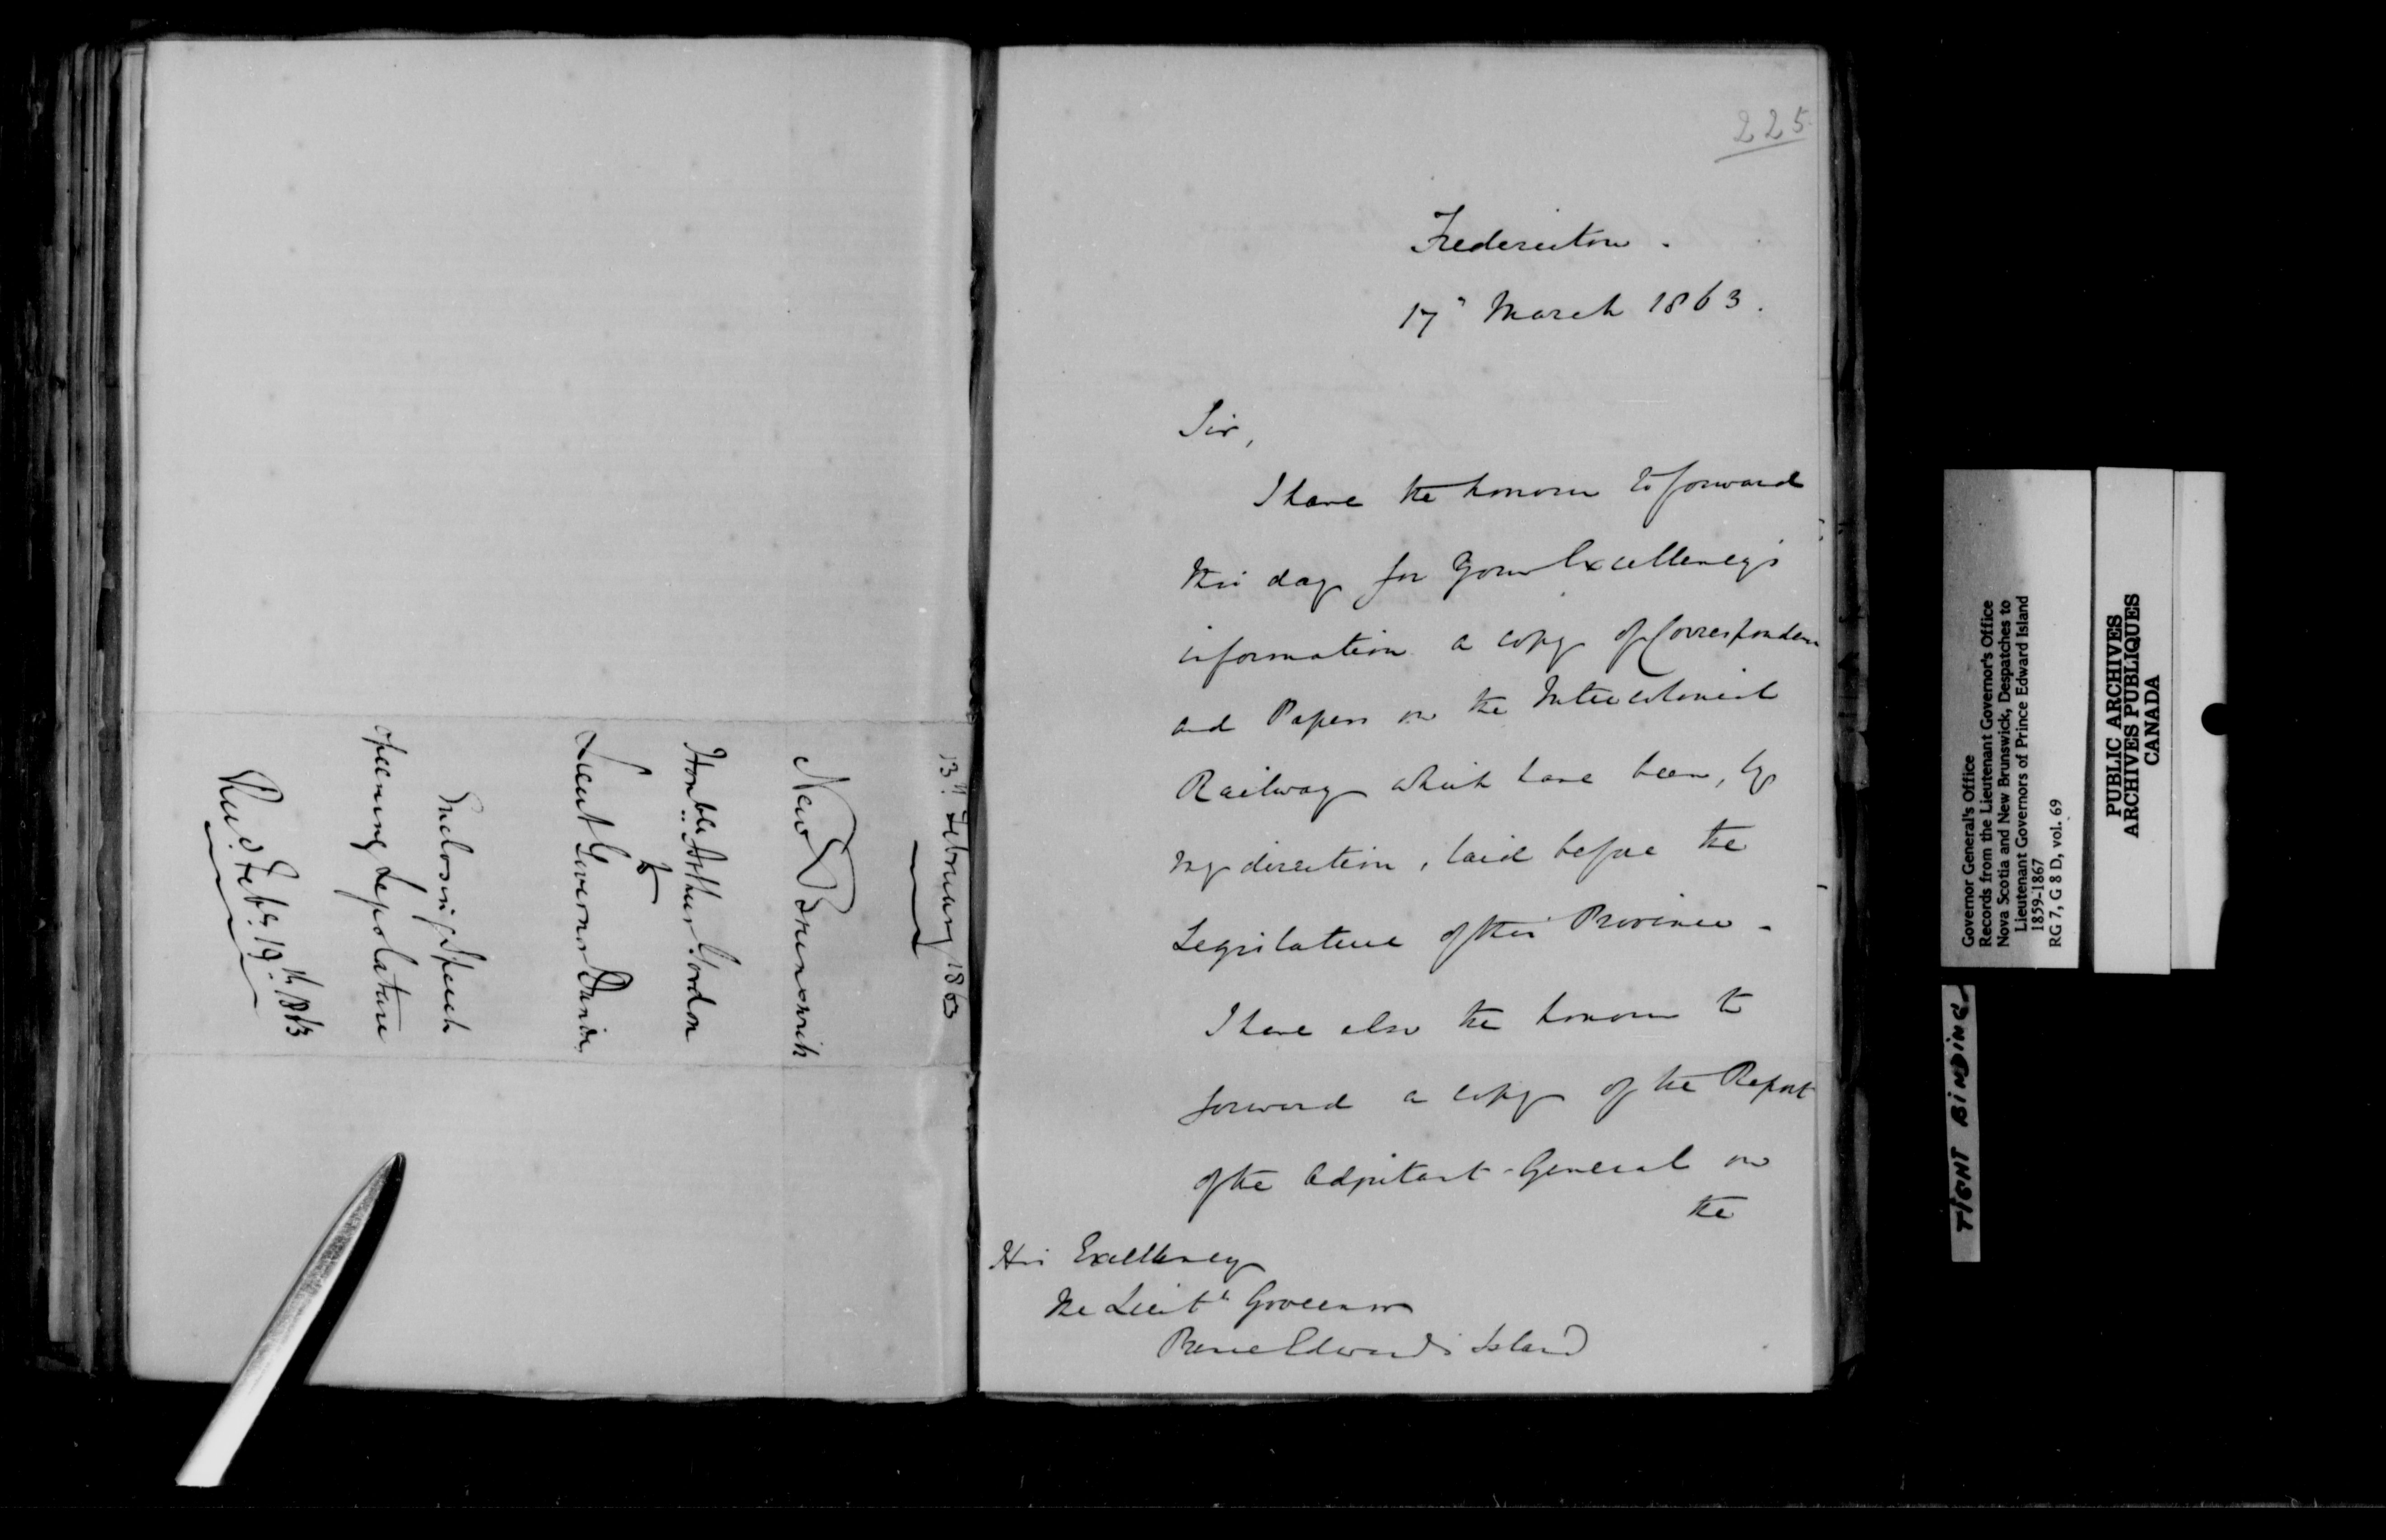 13th February 1863
New Brunswick
Honble. Arthur Gordon
to
Lieut Governor Dundas
Enclosing Speech
opening Legislature
Rec.d Feby. 19th. 1863
225
Fredericton.
17" March 1863.
Sir,
I have the honour to forward
this day for Your Excellency's
information a copy of Corresponden
and Papers on the Intercolonial
Railway which have been, by
my direction, laid before the
Legislature of this Province.
I have also the honour to
forward a copy of the Report
of the Adjutant-General on
the
His Excellency
The Lieutt Governor
Prince Edward's Island
Governor General's Office
Records from the Lieutenant Governor's Office
Nova Scotia and New Brunswick, Despatches to
Lieutenant Governors of Prince Edward Island
1859-1867
RG 7, G 8 D, vol. 69
PUBLIC ARCHIVES
ARCHIVES PUBLIQUES
CANADA
TIGHT BINDING